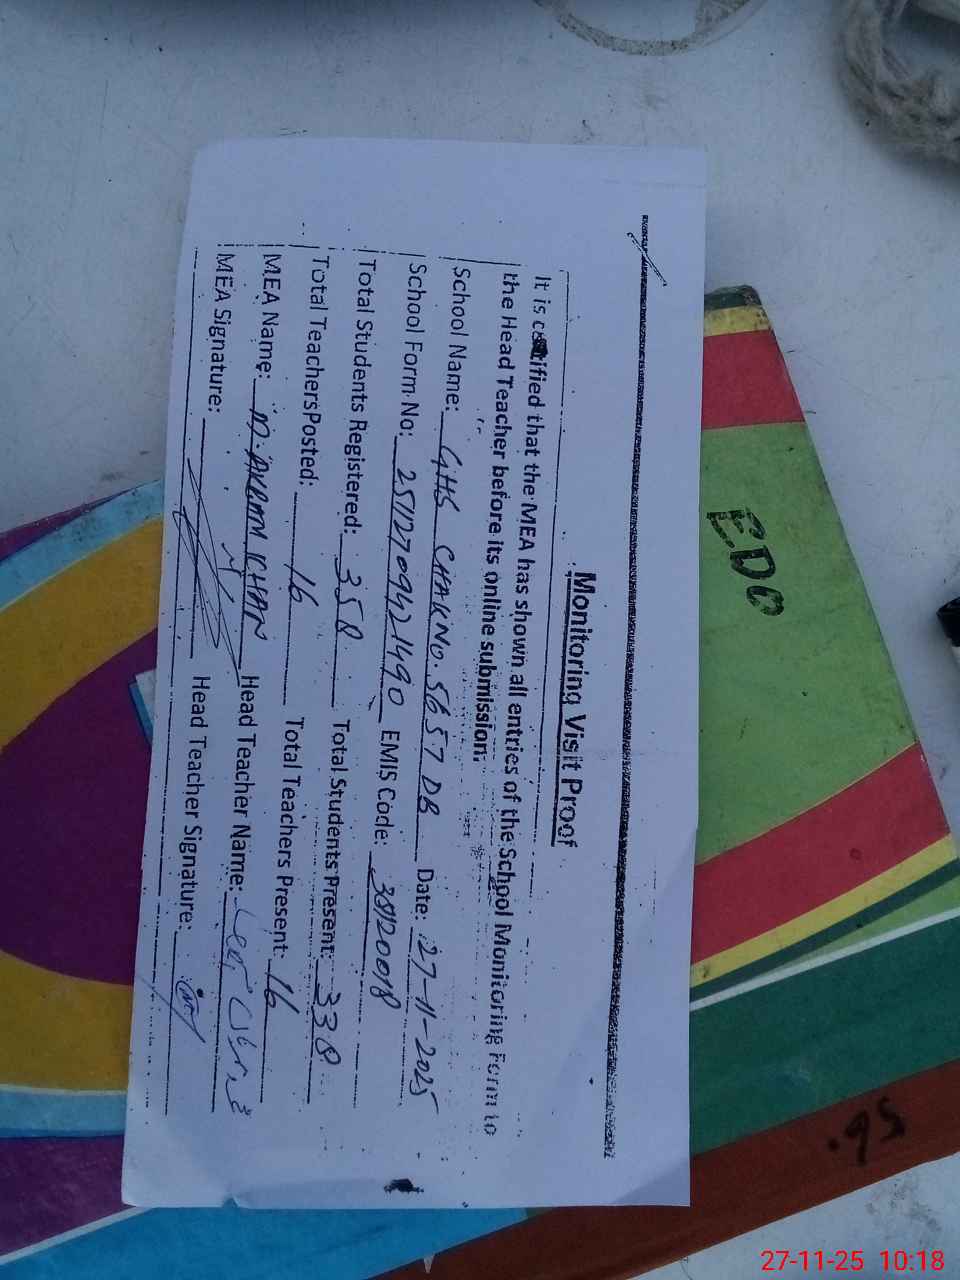 Monitoring Visit Proof
It is certified that the MEA has shown all entries of the School Monitoring Form to
the Head Teacher before its online submission.
School Name: GHS CHAK NO. 5657 DB Date: 27-11-2025
School Form No: EMIS Code:
Total Students Registered: 358 Total Students Present: 338
Total TeachersPosted: 16 Total Teachers Present: 16
MEA Name: M. AKRAM KHAN Head Teacher Name:
MEA Signature: Head Teacher Signature:
EDO
.95
27-11-25 10:18